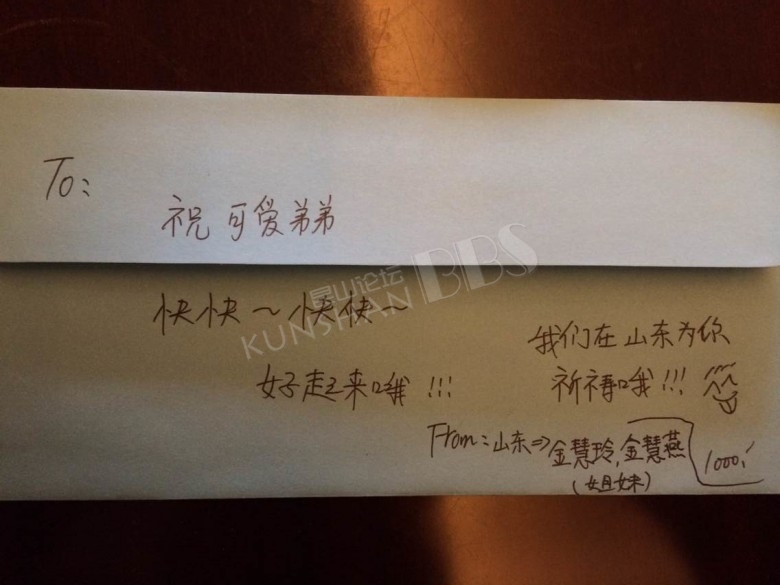 To:
祝可爱弟弟
昆山论坛 BBS
KUNSHAN
快快~快快~
好起来哦!!!
我们在山东为你
祈福哦!!!
From:山东⇒金慧玲,金慧燕
(姐妹)
1000.-